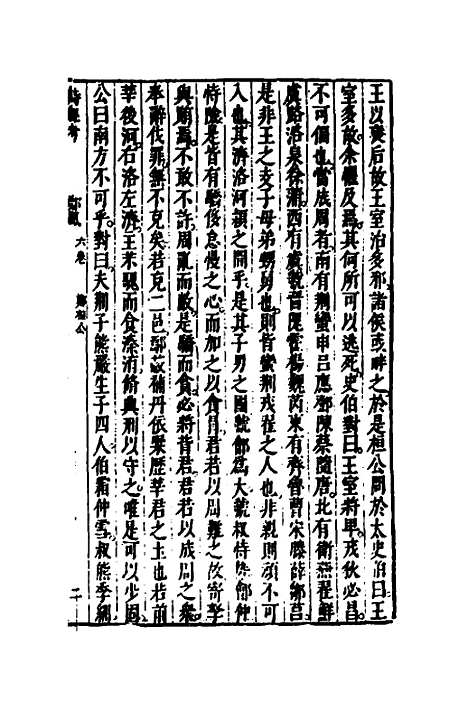 王以褒后故王室治多邪諸侯或畔之於是桓公問於太史伯曰王
室多故余懼及焉其何所可以逃死史伯對曰王室將卑戎狄必昌
不可偪也當成周者南有荆蠻申呂應鄧陳蔡隨唐北有衛燕翟鮮
虞路洛泉徐蒲西有虞虢晉隗霍楊魏芮東有齊魯曹宋滕薛鄒莒
是非王之支子母弟甥舅也則皆蠻荆戎翟之人也非親則頑不可
入也其濟洛河潁之間乎是其子男之國虢鄶爲大虢叔恃勢鄶仲
恃險是皆有驕侈怠慢之心而加之以貪冒君若以周難之故寄孥
與賄焉不敢不許周亂而敝是驕而貪必將背君君若以成周之衆
奉辭伐罪無不克矣若克二邑鄔蔽補丹依䣜歷莘君之土也若前
莘後河右洛左濟主芣騩而食溱洧脩典刑以守之唯是可以少固
公曰南方不可乎對曰夫荆子熊嚴生子四人伯霜仲雪叔熊季紃
詩經考
鄭風 六卷 二